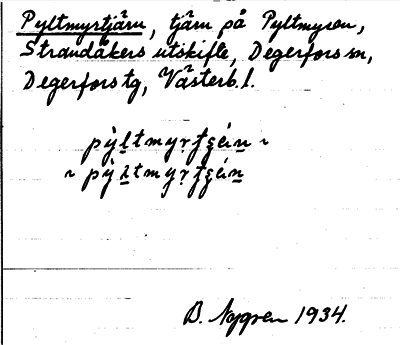 Pyltmyrtjärn, tjärn på Pyltmyren,
Strandåkers utskifte, Degerfors sn,
Degerfors tg, Västerb. l.
B. Nygren 1934.